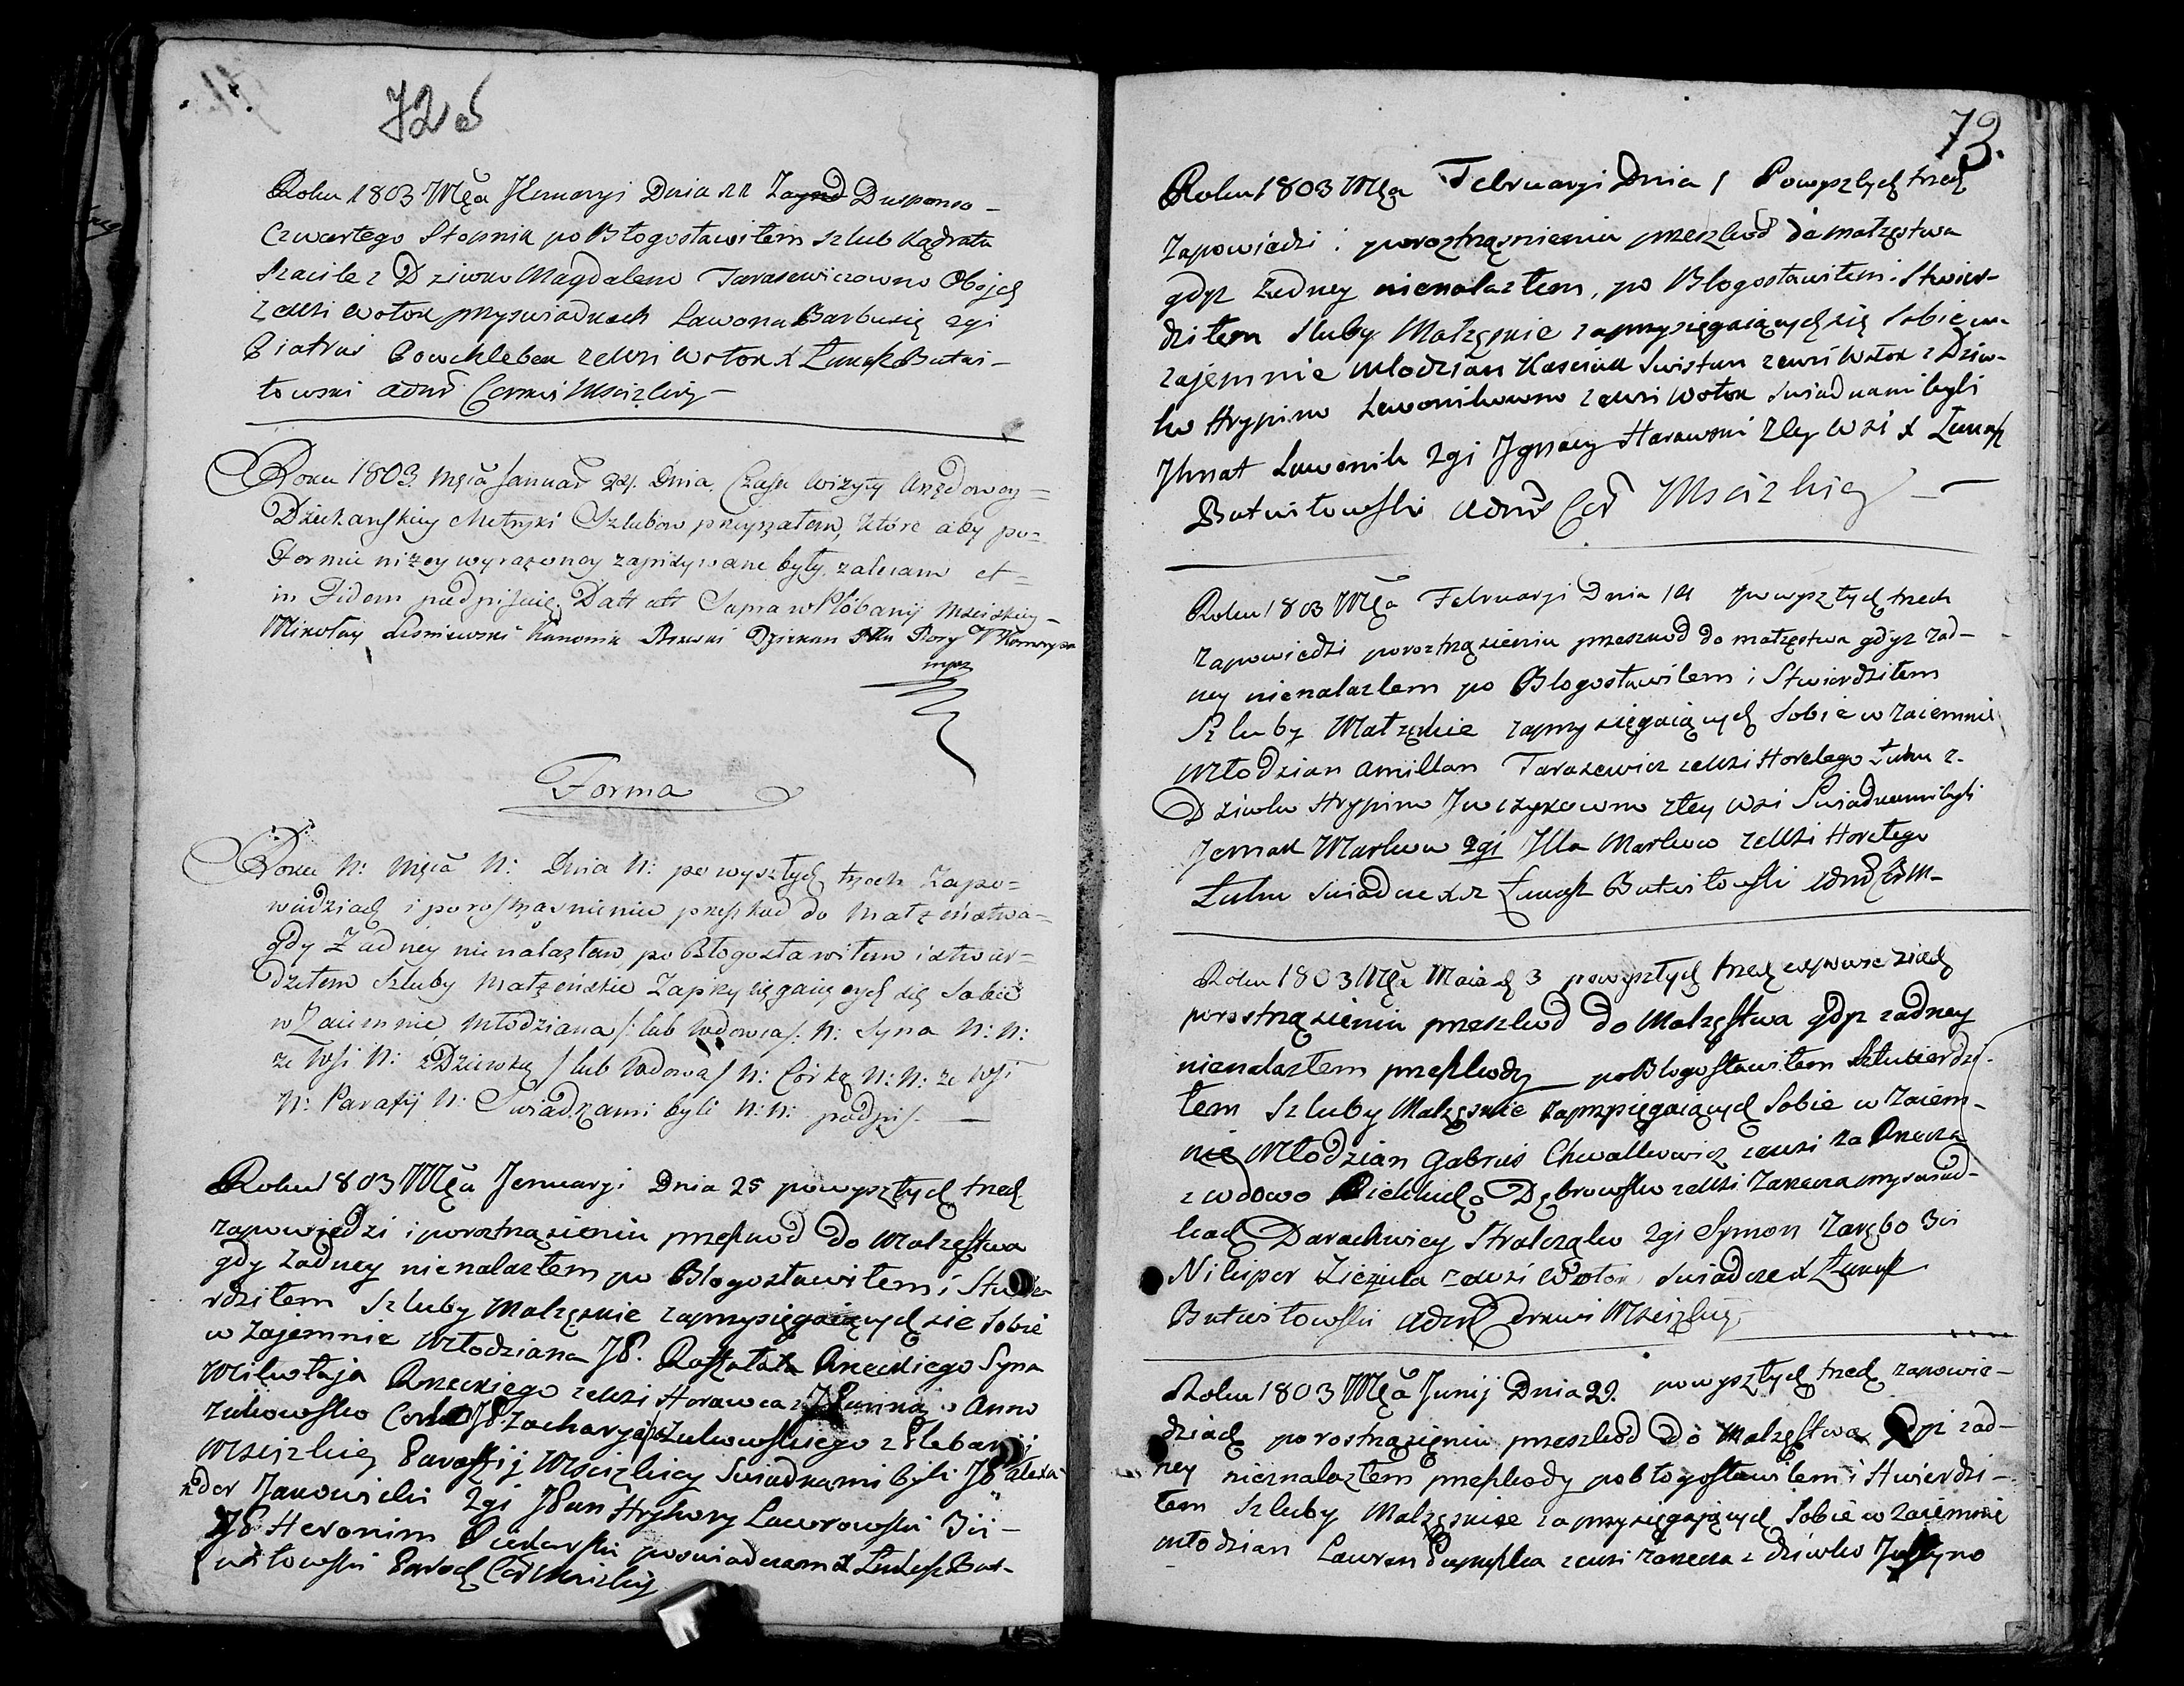 72 b
Roku 1803 Mca Jenuaryi Dnia 11 Duspensa-
Czwartego Stopnia po Błogosławiłem szlub Kądrata
z Dziwko Magdaleno Tarasewiczowno Obojch
zewsi Wołok przyswiadkach Lawona Barbusię 2gi
Piatruś zewsi Wołok X Łukasz Butwi-
łowski admr Cerkwi Mscizkiey
Roku 1803. Męca Januar 24. Dnia. Czasu Wizyty Urzędowey=
Dziekanskiey Metryki Szlubow przeyrzałem, które aby po=
Formie niżey wyrażoney zapisywane były, zalecam et=
in Fidem podpisuię. Datt utt Supra w Plebanij Mscizkiey-
Mikołay Leśniewski Kanonik Brzeski Dziekan
mpr
Forma
Roku N: Męca N: Dnia N: po wyszłych trzech Zapo=
wiedziach i porostrząsnieniu przeszkod do Małżeństwa-
gdy Żadney nienalazłem, po Błogosławiłem i stwier-
dziłem Szluby Małżeńskie Zaprzysięgaiących się Sobie
wZaiemnie Młodziana /: lub Wdowca /: N: Syna N: N:
ze Wsi N: zDziewką / lub Wdową / N: Corką N: N: ze Wsi
N: Parafij N: Swiadkami byli N: N: podpis. —
Roku 1803 Mca Jenuaryi Dnia 25 powyszłych trzech
zapowiedzi i porostrząsieniu przeszkod do Małzęstwa
gdy żadney nienalazłem po Błogosławiłem i Stwie-
rdziłem Szluby Małzęskie zaprzysięgaiących sie Sobie
w zajemnie Młodziana JP. Rafała Rzeckiego Syna
Mikołaja Rzeckiego zewsi Horawca z Anno
Zukowsko Corko JP Zacharyasza Zukowskiego z Plebanij
Mscizkiey Parafij Mscizkiey Swiadkami byli JP alexa-
nder Janowicki 2gi JPan Hryhory Lawrowski 3ci-
JP Heronim Piekarski poswiadczam X Łukasz But-
wiłowski Paroch Cer Mscizkiey
73.
Roku 1803 Męa Februaryi Dnia 1 Powyszłych trzech
zapowiedzi i porostrząsnieniu przeszkod do małzęstwa
gdyz żadney nienalazłem, po Błogosławiłem i Stwier-
dziłem sluby Małzęskie zaprzysięgaiących się Sobie w-
zajemnie Młodzian Kasciuk Swistun zewsi Wołok z Dziw-
ko Hrypino Lewonikowno zewsi Wołok Swiadkami byli
Jhnat Lawonik 2gi Jgnacy Harawski Zley Wsi X Łukasz
Butwiłowski admr Cer Mscizkiey
Roku 1803 Męa Februaryi Dnia 14 powyszłych trzech
zapowiedzi porostrząsieniu przeszkod do małzęstwa gdyz żad-
ney nienalazłem po Błogosławiłem i Stwierdziłem
Szluby Małzęskie zaprzysięgaiących Sobie w zaiemnie
Młodzian Amillan Tarasewicz zewsi Horełego Łuhu z-
Dziwko Hrypino Jwczykowno ztey Wsi Swiadkami byli
Jermak Markow 2gi Jlla Markow zewsi Horełego
Łuhu swiadcze X Łukasz Butwiłowski admr
Roku 1803 Męa Maia d 3 powyszłych trzech zapowiedziach
porostrząsieniu przeszkod do Małzęstwa gdyz zadney
nienalazłem przeszkody poBłogosławiłem Sztwierdzi-
łem Szluby Małzęskie zaprzysięgaiących Sobie w Zaiem-
nie Młodzian Gabruś Chwalkowicz zewsi za Rzecza
z wdowo Dąbrowsko zewsi Zarzecza przyswiad-
kach Darachwiey 2gi Symon Zarębo 3ci
Nikiper Ziezula zewsi Wołok swiadcze X Łukasz
Butwiłowski adm Cerkwi Mscizkiey
Roku 1803 Męa Junij Dnia 29. powyszłych trzech zapowie-
dziach porostrząsięniu przeszkod do Małzęstwa gdyz zad-
ney nieznalazłem przeszkody pobłogosławiłem i stwierdzi-
łem Szluby Małzęskie zaprzysięgających Sobie w zaiemnie
młodzian Lawren zewsi Zarzecza z dziwko Justyno